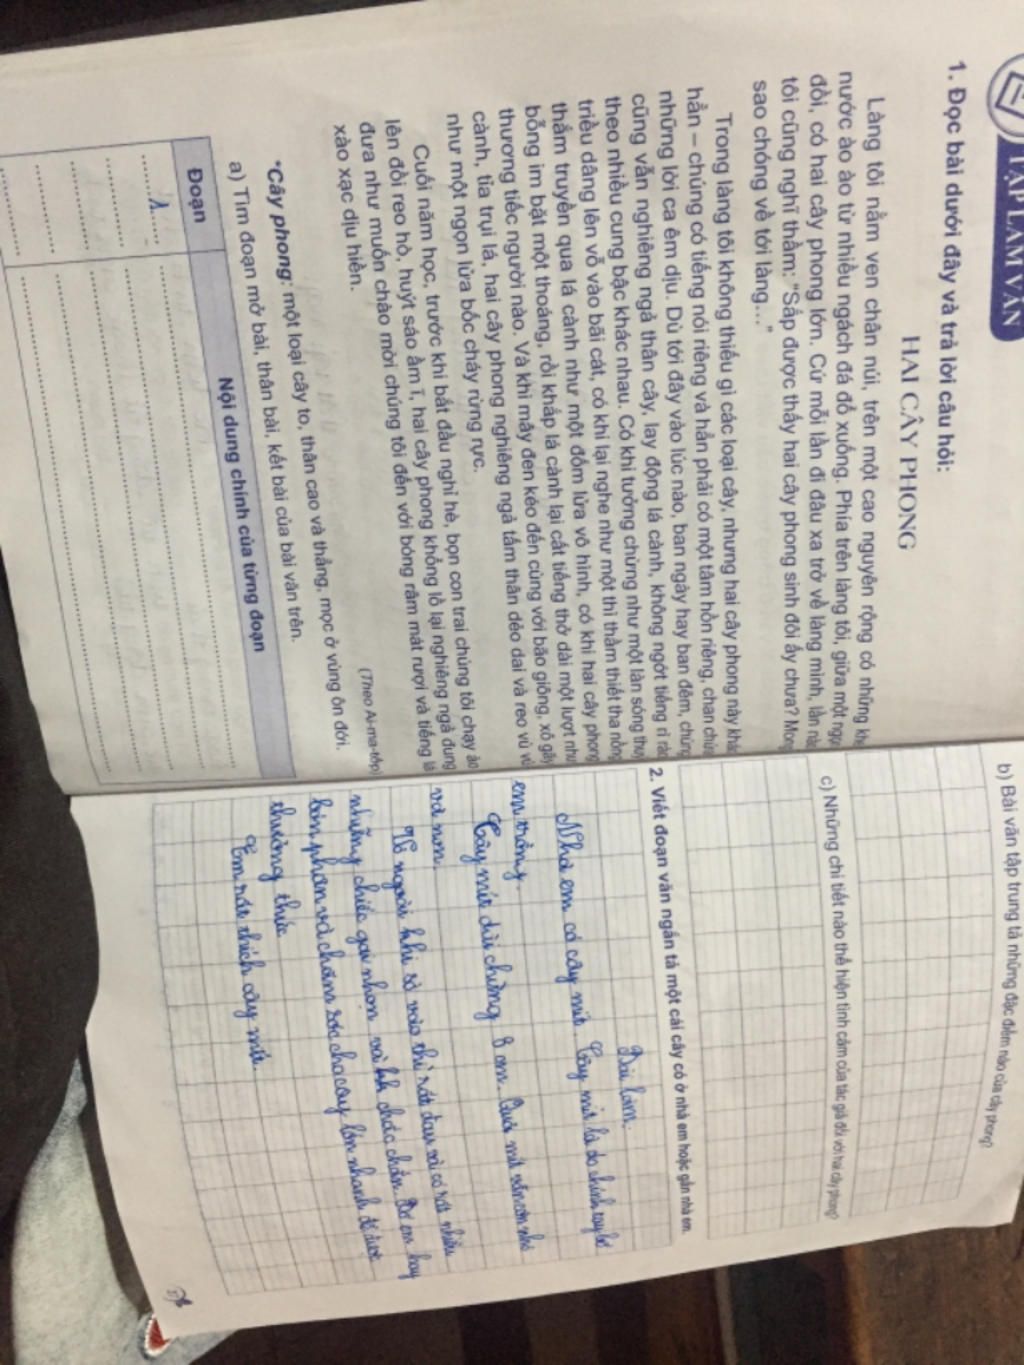 TẬP LÀM VĂN
1. Đọc bài dưới đây và trả lời câu hỏi:
HAI CÂY PHONG
Làng tôi nằm ven chân núi, trên một cao nguyên rộng có những
nước ào ào từ nhiều ngách đá đổ xuống. Phía trên làng tôi, giữa một
đồi, có hai cây phong lớn. Cứ mỗi lần đi đâu xa trở về làng mình, lần
tôi cũng nghĩ thầm: "Sắp được thấy hai cây phong sinh đôi ấy chưa? Mong
sao chóng về tới làng..."
Trong làng tôi không thiếu gì các loại cây, nhưng hai cây phong này
hẳn – chúng có tiếng nói riêng và hẳn phải có một tâm hồn riêng, chan
những lời ca êm dịu. Dù tới đây vào lúc nào, ban ngày hay ban đêm, chúng
cũng vẫn nghiêng ngả thân cây, lay động lá cành, không ngớt tiếng rì
theo nhiều cung bậc khác nhau. Có khi tưởng chừng như một làn sóng
triều dâng lên vỗ vào bãi cát, có khi lại nghe như một tiếng thì thầm thiết tha nồng
thắm truyền qua lá cành như một đốm lửa vô hình, có khi hai cây phong
bỗng im bặt một thoáng, rồi khắp lá cành lại cất tiếng thở dài một lượt như
thương tiếc người nào. Và khi mây đen kéo đến cùng với bão giông, xô gãy
cành, tỉa trụi lá, hai cây phong nghiêng ngả tấm thân dẻo dai và reo vù vù
như một ngọn lửa bốc cháy rừng rực.
Cuối năm học, trước khi bắt đầu nghỉ hè, bọn con trai chúng tôi chạy ào
lên đồi reo hò, huýt sáo ầm ĩ, hai cây phong khổng lồ lại nghiêng ngả đung
đưa như muốn chào mời chúng tôi đến với bóng râm mát rượi và tiếng lá
xào xạc dịu hiền.
(Theo Ai-ma-tốp)
*Cây phong: một loại cây to, thân cao và thẳng, mọc ở vùng ôn đới.
a) Tìm đoạn mở bài, thân bài, kết bài của bài văn trên.
Đoạn Nội dung chính của từng đoạn
1
b) Bài văn tập trung tả những đặc điểm nào của cây phong?
c) Những chi tiết nào thể hiện tình cảm của tác giả đối với hai cây phong?
2. Viết đoạn văn ngắn tả một cái cây có ở nhà em hoặc gần nhà em.
Bài làm.
Nhà em có cây mít. Cây mít là do chính tay bố
em trồng.
Cây mít dài chừng 8 cm. Quả mít vẫn còn nhỏ
và non.
Vỏ ngoài khi sờ vào thì rất đau vài có rất nhiều
những chiếc gai nhọn và chắc chắn. Bố em hay
bón phân và chăm sóc cho cây lớn nhanh để được
thưởng thức
Em rất thích cây mít.